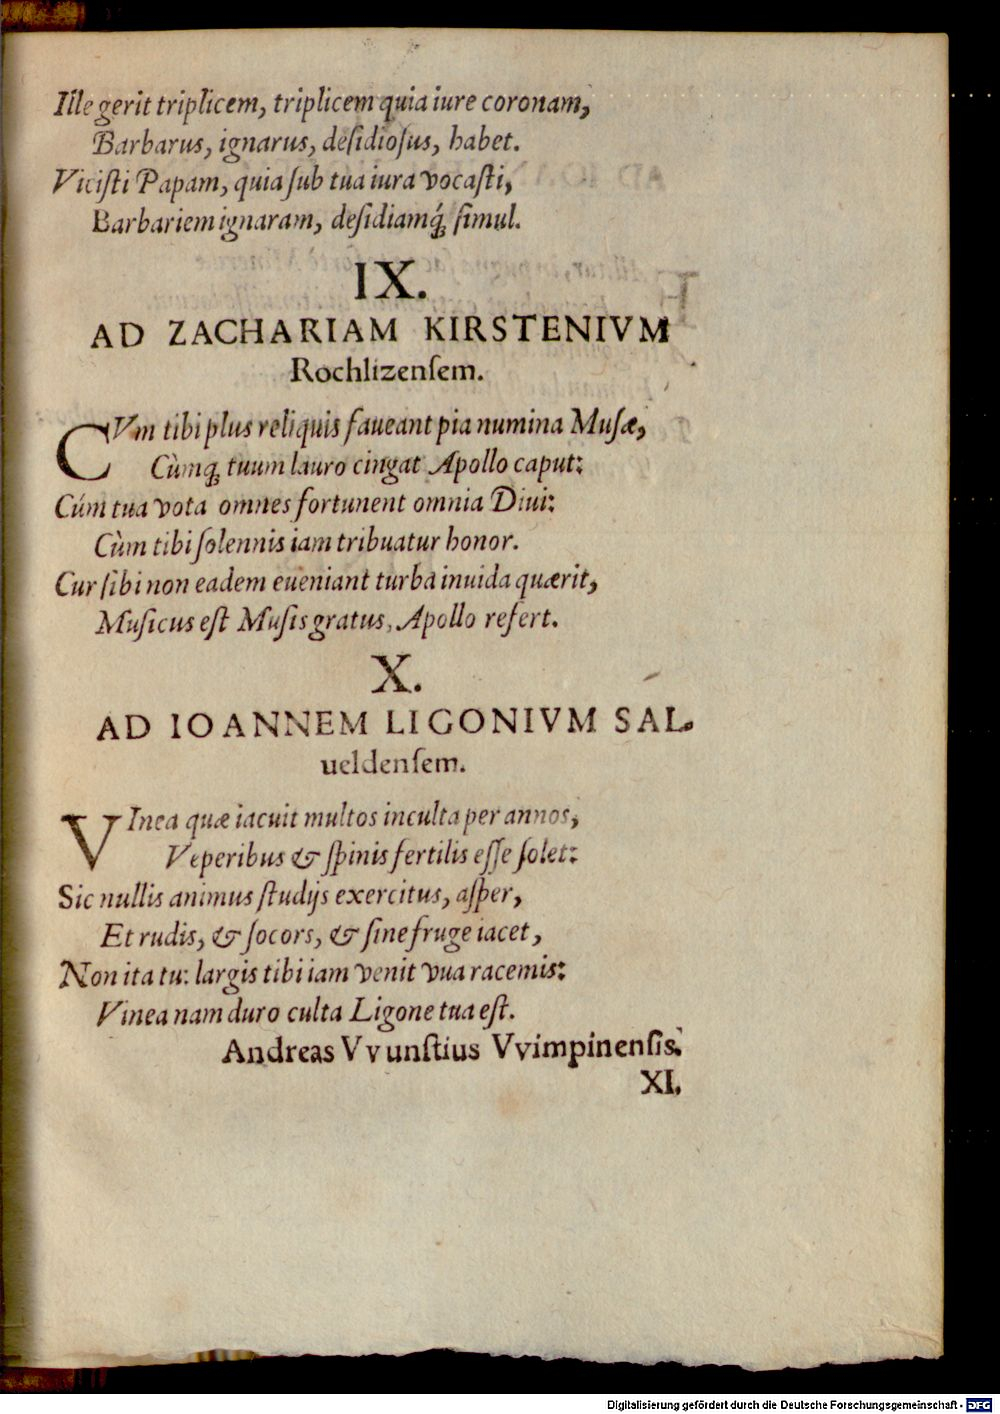 Ille gerit triplicem, triplicem quia iure coronam,
Barbarus, ignarus, deſidioſus, habet.
Viciſti Papam, quia ſub tua iura vocaſti,
Barbariem ignaram, deſidiamq́; ſimul.
IX.
AD ZACHARIAM KIRSTENIVM
Rochlizenſem.
CVm tibi plus reliquis faueant pia numina Muſæ,
Cùmq; tuum lauro cingat Apollo caput:
Cúm tua vota omnes fortunent omnia Diui:
Cùm tibi ſolennis iam tribuatur honor.
Cur ſibi non eadem eueniant turba inuida quærit,
Muſicus eſt Muſis gratus, Apollo refert.
X.
AD IOANNEM LIGONIVM SAL-
ueldenſem.
VInea quæ iacuit multos inculta per annos,
Veperibus & ſpinis fertilis eſſe ſolet:
Sic nullis animus ſtudijs exercitus, aſper,
Et rudis, & ſocors, & ſine fruge iacet,
Non ita tu: largis tibi iam venit vua racemis:
Vinea nam duro culta Ligone tua eſt.
Andreas Vvunſtius Vvimpinenſis.
XI.
Digitalisierung gefördert durch die Deutsche Forschungsgemeinschaft - DFG